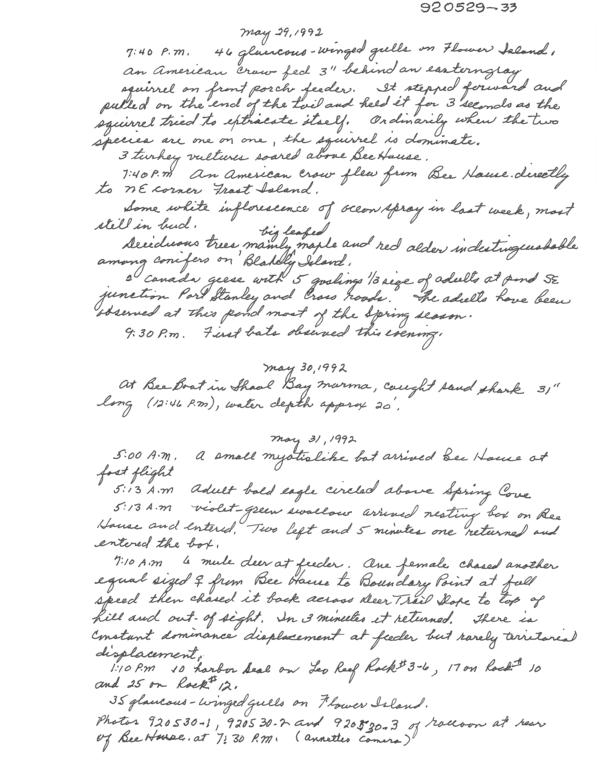 920529-33
May 29, 1992
7:40 P.M. 46 glaucous-winged gulls on Flower Island.
An American Crow fed 3" behind an eastern gray
squirrel on front porch feeder. It stepped forward and
pulled on the end of the tail and held it for 3 seconds as the
squirrel tried to extricate itself. Ordinarily when the two
species are one on one, the squirrel is dominate.
3 turkey vultures soared above Bee House.
7:40 P.M An American crow flew from Bee House directly
to NE corner Frost Island.
Some white inflorescence of ocean spray in last week, most
still in bud.
big leafed
Deciduous trees, mainly maple and red alder indistinguishable
among conifers on Blakely Island.
2 Canada geese with 5 goslings 1/3 size of adults at pond SE
junction Port Stanley and Cross roads. The adults have been
observed at this pond most of the Spring season.
9:30 P.M. First bats observed this evening.
May 30, 1992
At Bee Boat in Shoal Bay, caught sand shark 31"
long (12:46 P.M), water depth approx 20'.
May 31, 1992
5:00 A.M. A small myotislike bat arrived Bee House at
fast flight
5:13 A.M Adult bald eagle circled above Spring Cove
5:13 A.M violet-green swallow arrived nesting box on Bee
House and entered. Two left and 5 minutes one returned and
entered the box.
7:10 A.M 6 mule deer at feeder. One female chased another
equal sized ♀ from Bee House to Boundary Point at full
speed then chased it back across Deer Trail Slope to top of
hill and out of sight. In 3 minutes it returned. There is
constant dominance displacement at feeder but rarely territorial
displacement.
1:10 P.M 10 harbor seal on Leo Reef Rock #3-6, 17 on Rock # 10
and 25 on Rock # 12.
35 glaucous-winged gulls on Flower Island.
Photos 920530-1, 920530-2 and 920530-3 of raccoon at rear
of Bee House at 7:30 P.M. (Annettes camera)